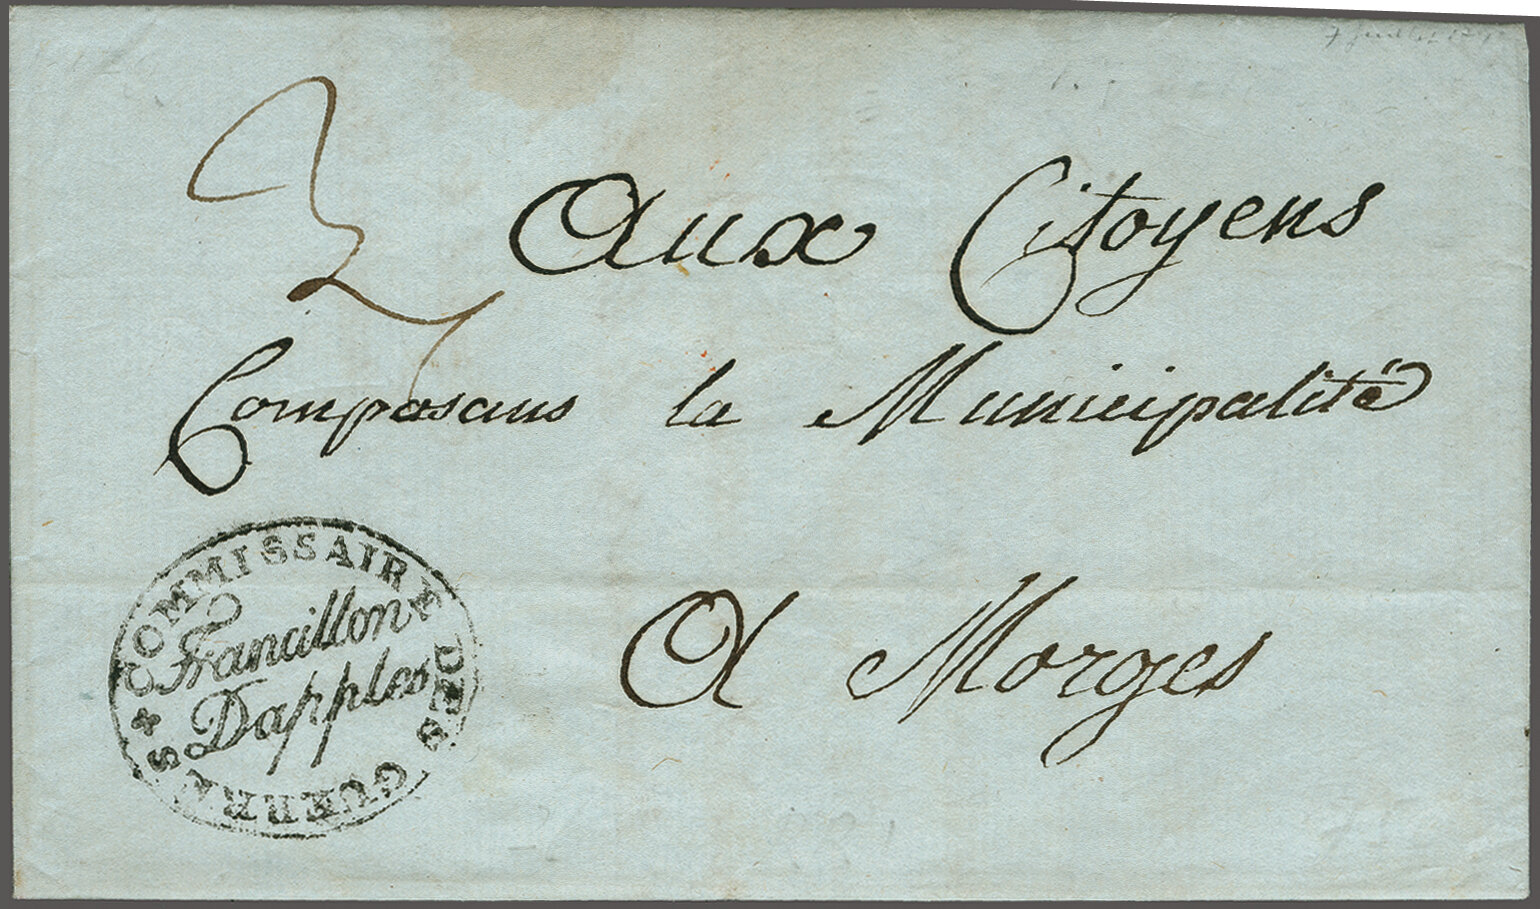 7 Juillet
Aux Citoyens
Composans la Municipalité
COMMISSAIRE DES GUERRES
Francillon
Dapples
A Morges